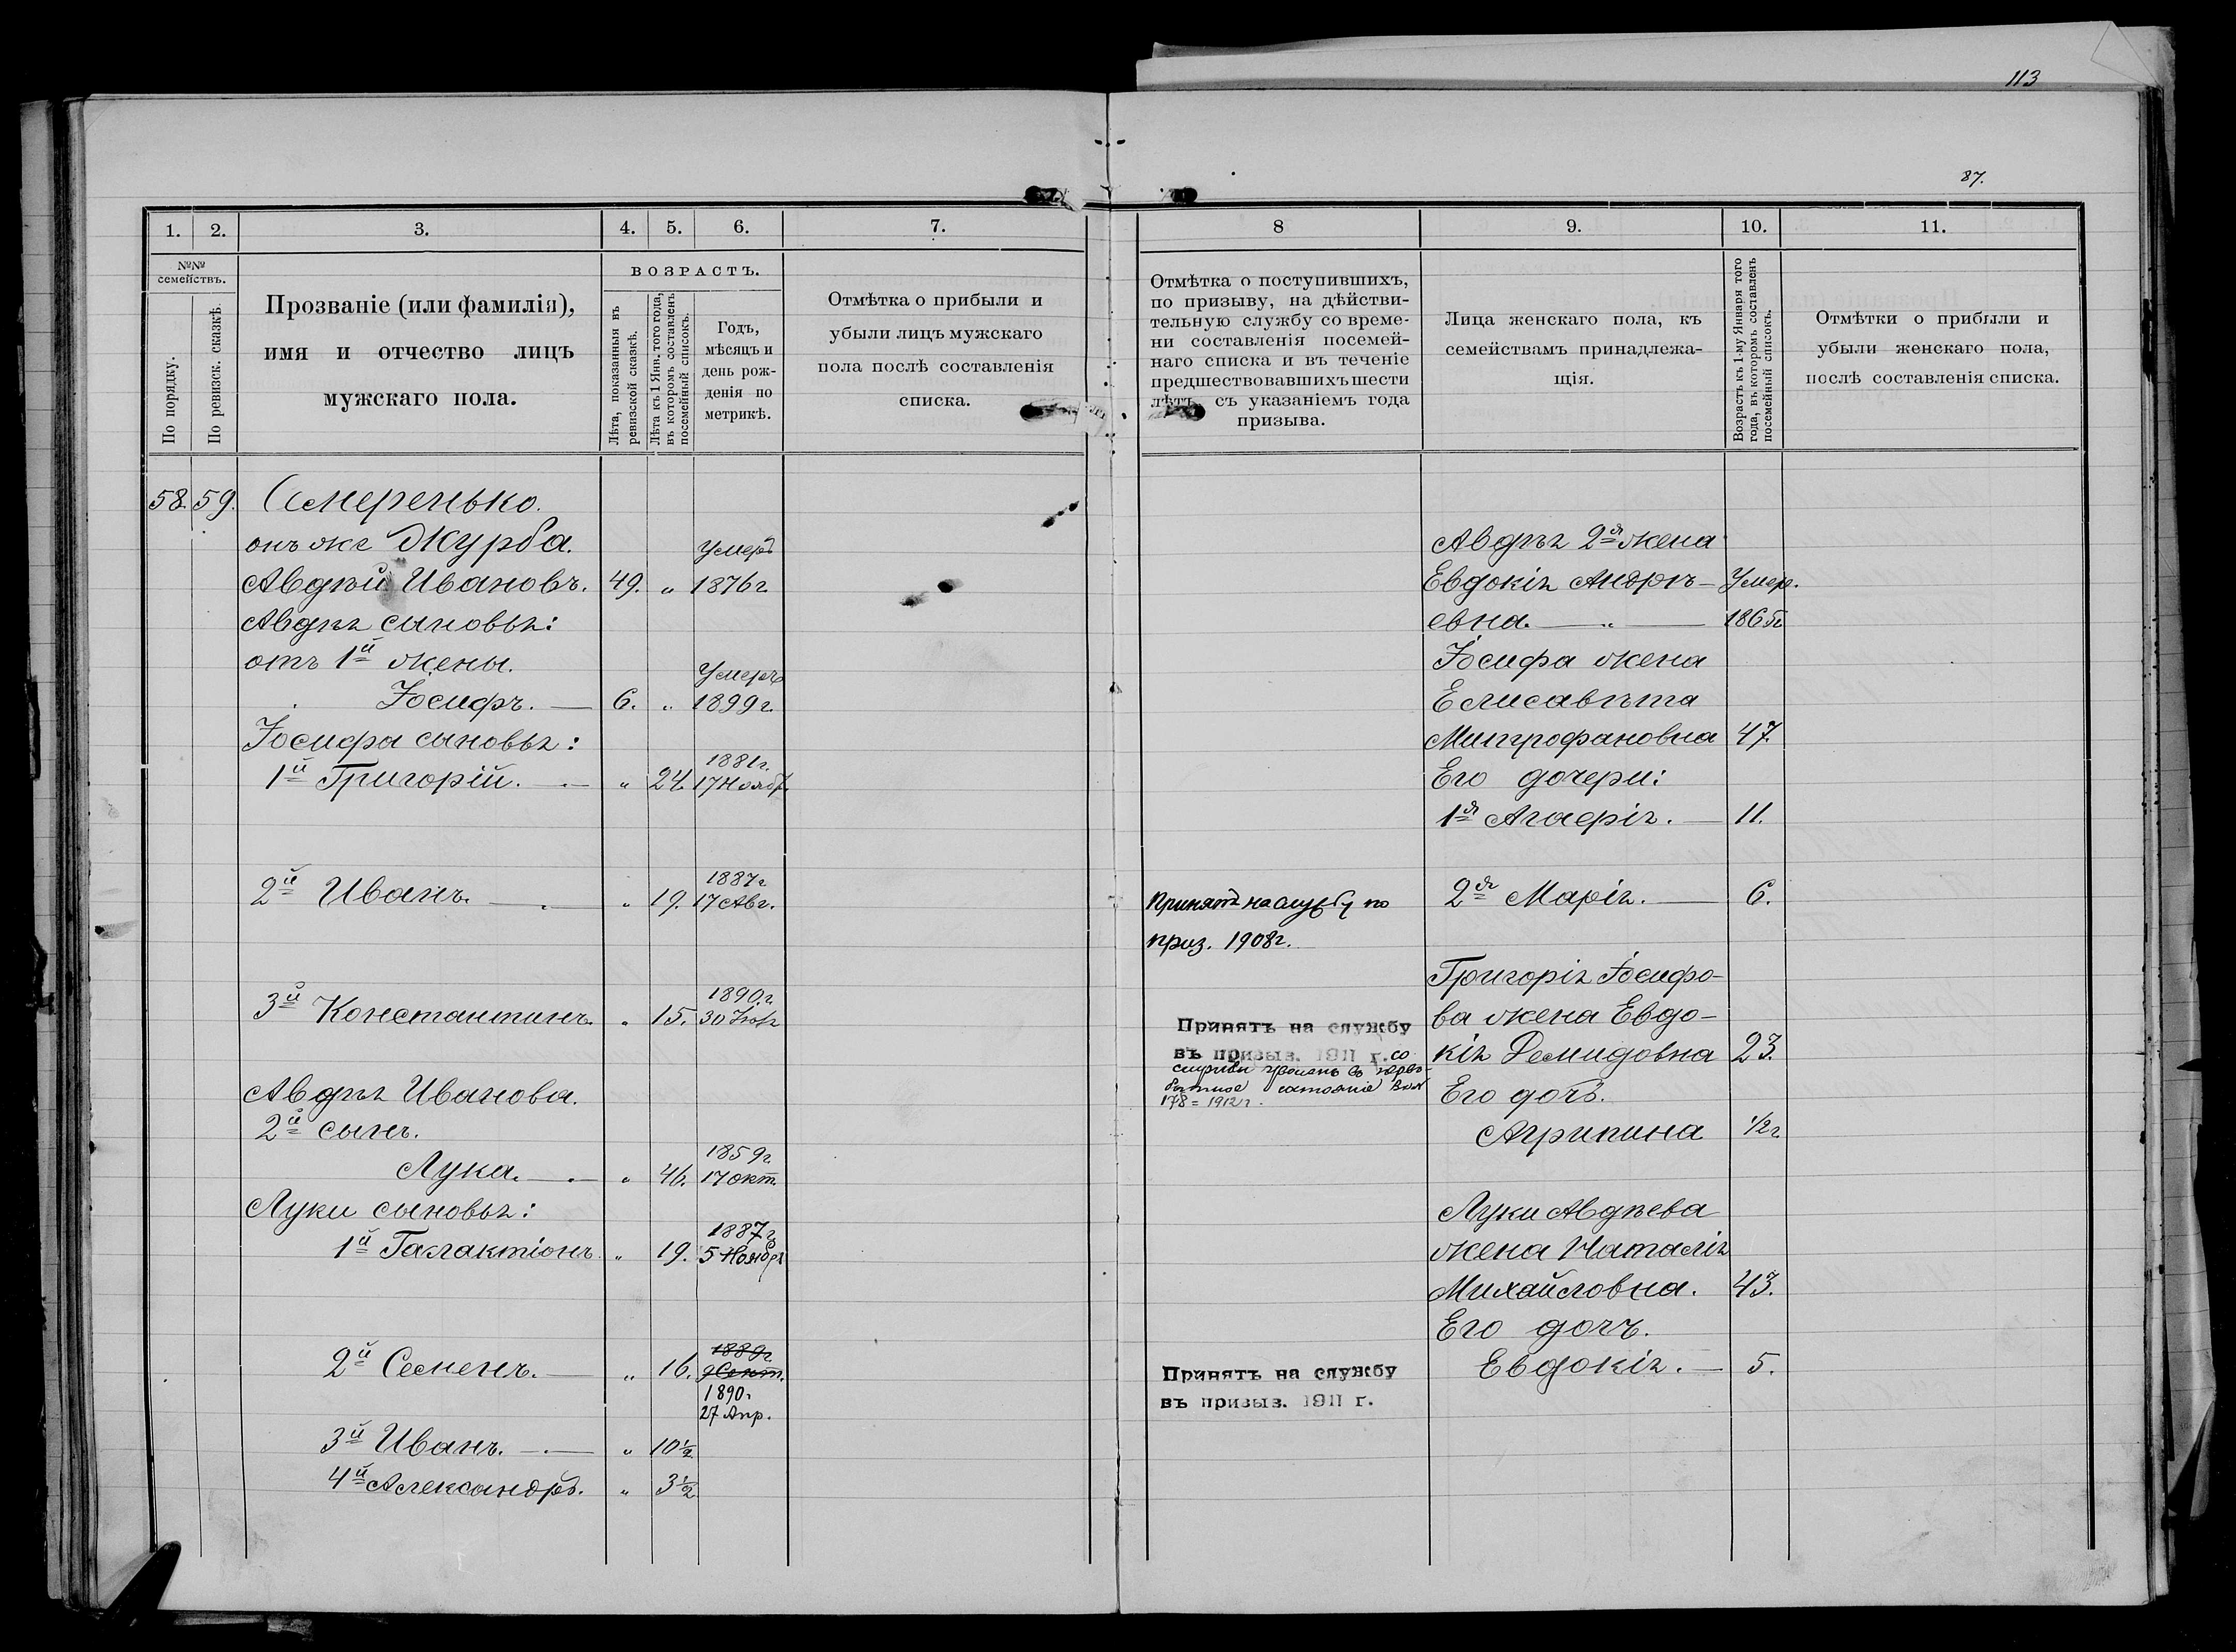 113
87.
1. 2. 3. 4. 5. 6. 7.
№№ семействъ.
По порядку.
По ревизск. сказкѣ.
Прозваніе (или фамилія),
имя и отчество лицъ
мужскаго пола.
ВОЗРАСТЪ.
Лѣта, показанныя въ
ревизской сказкѣ.
Лѣта къ 1 Янв. того года,
въ которомъ составленъ
посемейный списокъ.
Годъ,
мѣсяцъ и
день рож-
денія по
метрикѣ.
Отмѣтка о прибыли и
убыли лицъ мужскаго
пола послѣ составленія
списка.
58. 59. Смеренько.
онъ же Журба. Умеръ
Авдѣй Ивановъ. 49. „ 1876 г
Авдѣя сыновья:
отъ 1й жены. Умеръ
Іосифъ. — 6. „ 1899 г.
Іосифа сыновья:
1881 г.
1й Григорій. — „ 24. 17 Ноябр.
1887 г
2й Иванъ. — „ 19. 17 Авг.
1890 г.
3й Константинъ. „ 15. 30 Ноя
Авдѣя Иванова.
2й сынъ. 1859 г
Лука. — „ 46. 17 окт.
Луки сыновья: 1887 г
1й Галактіонъ. „ 19. 5 Ноября
1889 г
2й Семенъ. — „ 16. 9 Сент.
1890 г
27 Апр.
3й Иванъ. — „ 10 ½
4й Александръ. „ 3 ½
8 9. 10. 11.
Отмѣтка о поступившихъ,
по призыву, на дѣйстви-
тельную службу со време-
ни составленія посемей-
наго списка и въ теченіе
предшествовавшихъ шести
лѣтъ, съ указаніемъ года
призыва.
Лица женскаго пола, къ
семействамъ принадлежа-
щія.
Возрастъ къ 1-му Января того
года, въ которомъ составленъ
посемейный списокъ.
Отмѣтки о прибыли и
убыли женскаго пола,
послѣ составленія списка.
Авдѣя 2я жена
Евдокія Андрѣ- Умер.
евна. — „ — 1865 г
Іосифа жена
Елисавѣта
Митрофановна 47.
Его дочери:
1я Агаѳрія. — 11.
Принятъ на службу по 2я Марія. — 6.
приз. 1908 г.
Григорія Іосифо-
Принятъ на службу ва жена Евдо-
въ призыв. 1911 г. со кія Демидовна 23.
службы уволенъ въ перво-
бытное состояніе
178 = 1912 г.
Его дочь.
Агрипина ½ г
Луки Авдѣева
жена Наталія
Михайловна. 43.
Его дочь.
Принятъ на службу Евдокія. — 5.
въ призыв. 1911 г.